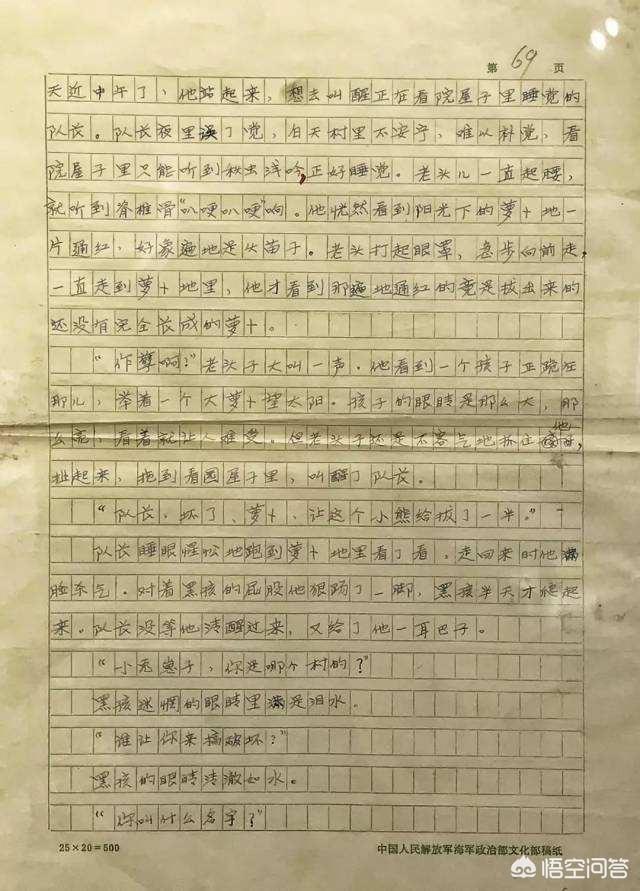 第 69 页
天近中午了，他站起来，想去叫醒正在看院屋子里睡觉的
队长。队长夜里误了觉，白天村里不安宁，难以补觉，看
院屋子里只能听到秋虫浅吟，正好睡觉。老头儿一直起腰，
就听到脊椎骨“叭哽叭哽”响。他恍然看到阳光下的萝卜地一
片通红，好象遍地是火苗子。老头打起眼罩，急步向前走，
一直走到萝卜地里，他才看到那遍地通红的竟是拔出来的
还没有完全长成的萝卜。
“作孽啊？”老头子大叫一声。他看到一个孩子正跪在
那儿，举着一个大萝卜望太阳。孩子的眼睛是那么大，那
么亮，看着就让人难受。但老头子还是不客气地抓住他，
扯起来，拖到看园屋子里，叫醒了队长。
“队长，坏了，萝卜，让这个小熊给拔了一半。”
队长睡眼惺忪地跑到萝卜地里看了看。走回来时他满
脸杀气。对着黑孩的屁股他狠踢了一脚，黑孩半天才爬起
来。队长没等他清醒过来，又给了他一耳巴子。
“小兔崽子，你是哪个村的？”
黑孩迷惘的眼睛里满是泪水。
“谁让你来搞破坏？”
黑孩的眼睛清澈如水。
“你叫什么名字？”
25×20=500 中国人民解放军海军政治部文化部稿纸
悟空问答